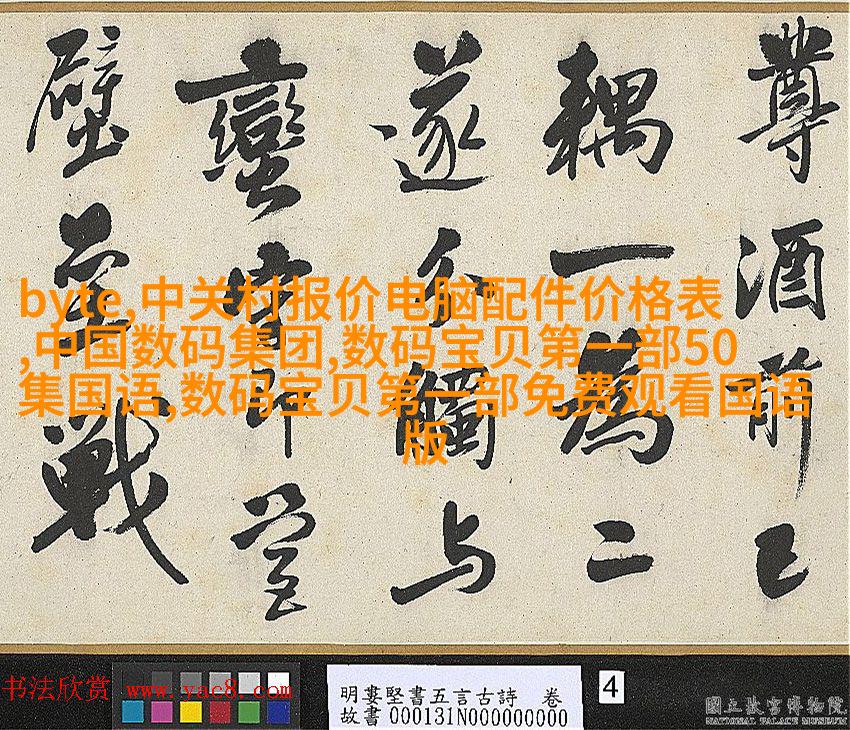 尊酒前已
耦一為二
遂分觸与
蠻即營
壁壘戰
byte,中关村报价电脑配件价格表
,中国数码集团,数码宝贝第一部50
集国语,数码宝贝第一部免费观看国语
版
书法欣赏 www.yac8.com
明婁堅書五言古詩 卷
故書 000131N000000000
4
國立故宮博物院
NATIONAL PALACE MUSEUM